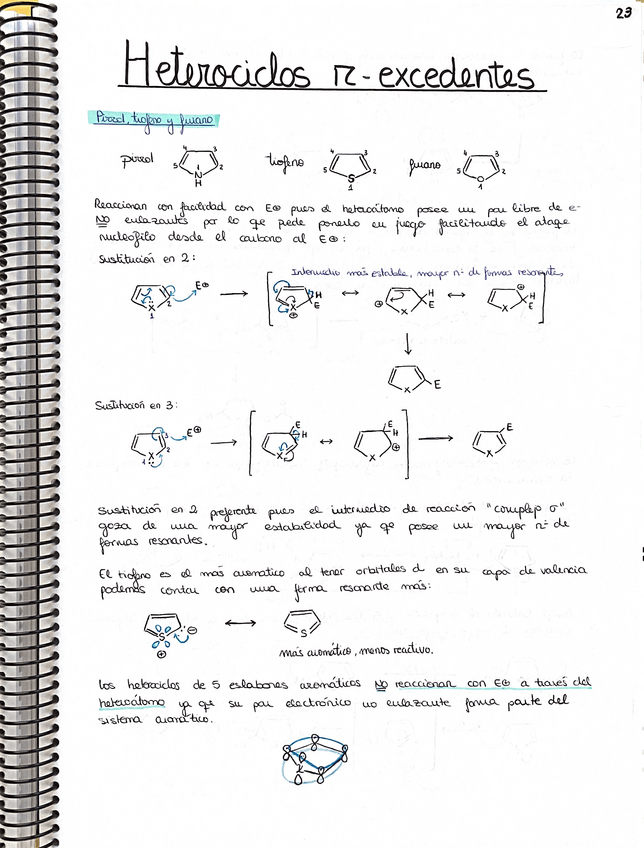 23
Heterociclos π-excedentes
Pirrol, tiofeno y furano
pirrol 4 3 5 2 N H tiofeno 4 3 5 2 S 1 furano 4 3 5 2 O 1
Reaccionan con facilidad con E⊕ pues el heteroátomo posee un par libre de e-
NO enlazantes por lo qe puede ponerlo en juego facilitando el ataqe
nucleófilo desde el carbono al E⊕:
Sustitución en 2:
Intermedio más estable, mayor nº de formas resonantes
X 1 2 E⊕ → [ X ⊕ H E ↔ ⊕ X H E ↔ ⊕ X H E ]
X E
Sustitución en 3:
X 1 2 3 E⊕ → [ X E H ↔ X E H ⊕ ] → X E
Sustitución en 2 preferente pues el intermedio de reacción "complejo σ"
goza de una mayor estabilidad ya qe posee un mayor nº de
formas resonantes.
El tiofeno es el más aromático al tener orbitales d en su capa de valencia
podemos contar con una forma resonante más:
S ⊕ ⊖ ↔ S
más aromático, menos reactivo.
Los heterociclos de 5 eslabones aromáticos NO reaccionan con E⊕ a través del
heteroátomo ya qe su par electrónico no enlazante forma parte del
sistema aromático.